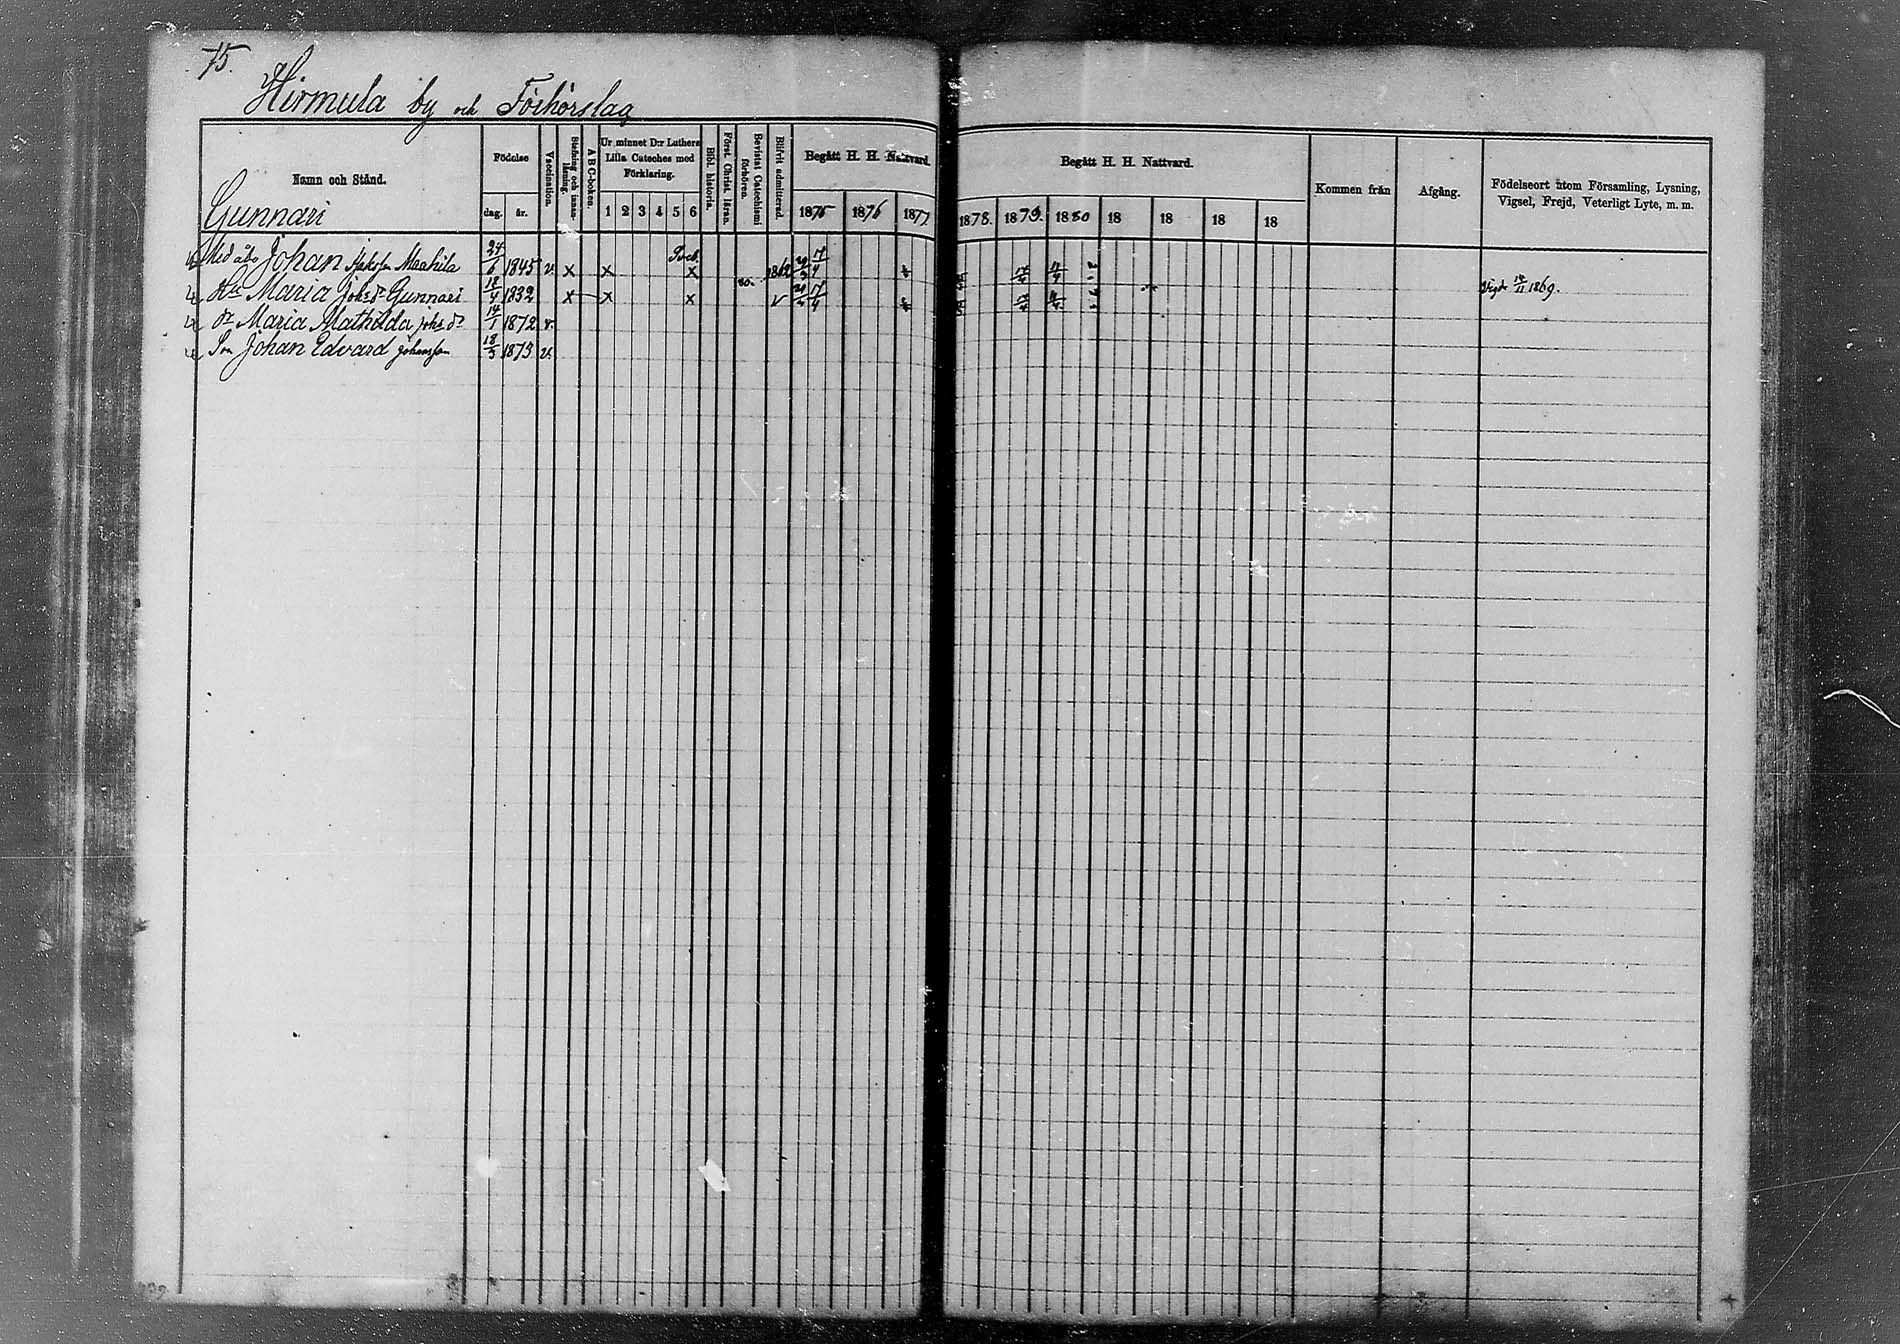 75.
Hirmula by och Förhörslag
Namn och Stånd.
Födelse
dag. år.
Vaccination.
Stafning och innan-läsning.
A B C-boken.
Ur minnet D:r Luthers Lilla Cateches med Förklaring.
1 2 3 4 5 6
Bibl. historia.
Först. Christ. läran.
Bevistat Catechismi förhören.
Blifvit admitterad.
Begått H. H. Nattvard.
1875 1876 1877
Begått H. H. Nattvard.
1878. 1879. 1880 18 18 18 18
Kommen från
Afgång.
Födelseort utom Församling, Lysning, Vigsel, Frejd, Veterligt Lyte, m. m.
Gunnari
Johan Maahila 24/6 1845 v. x x x 1862 17/4
Maria Johs dr Gunnari 18/4 1832 x x x v 17/4 Vigde 1869.
dr Maria Mathilda johs dr 14/1 1872 v.
Son Johan Edvard Johansson 18/3 1875 v.